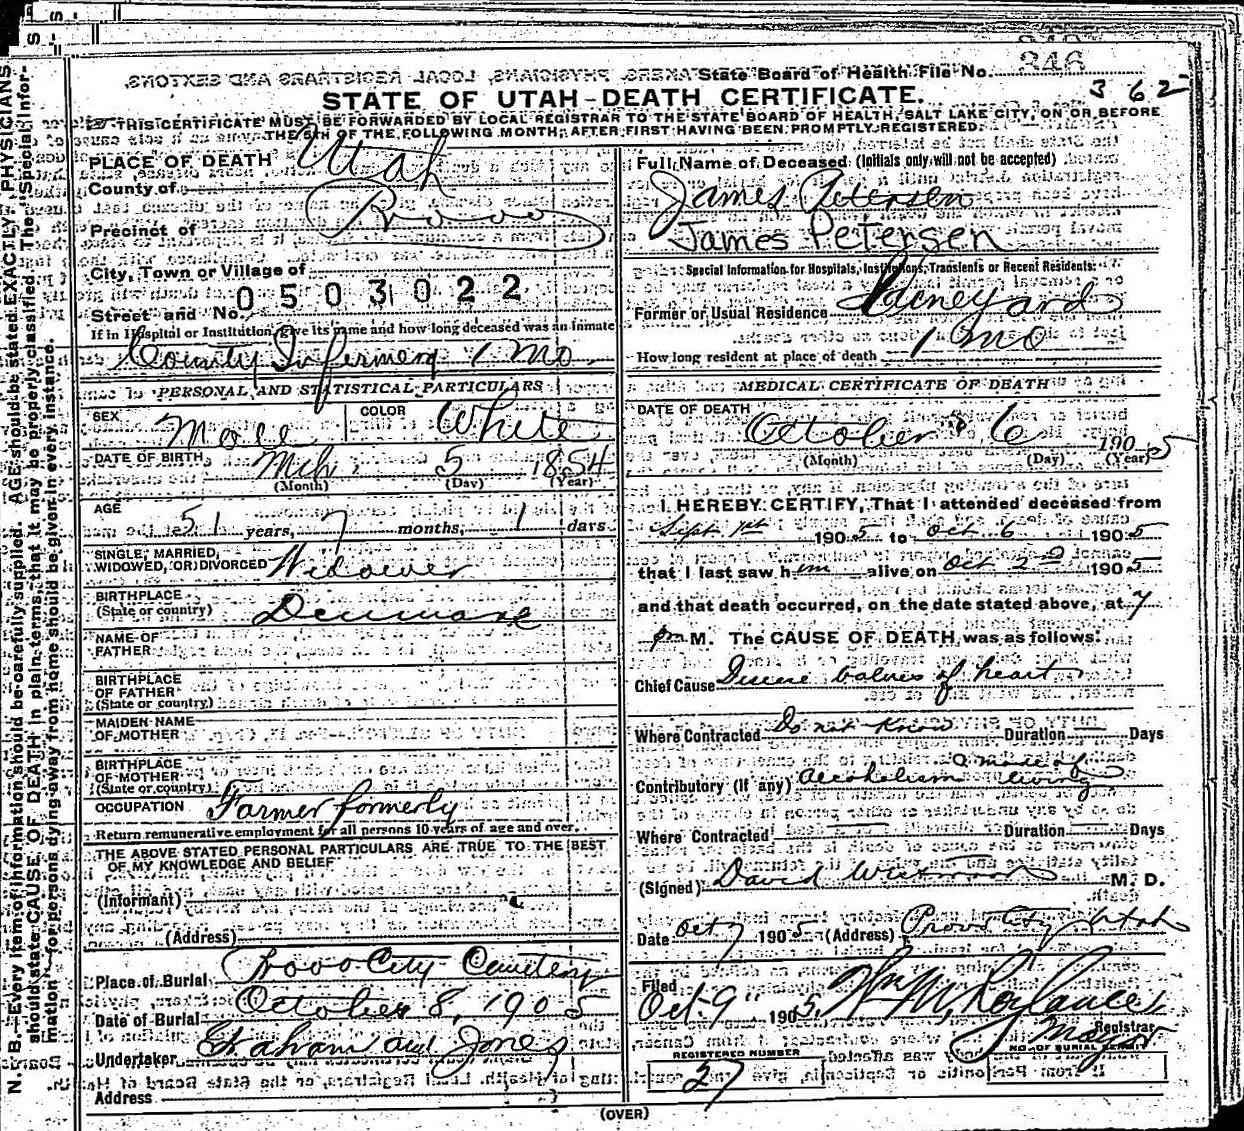 State Board of Health File No. 346
362
STATE OF UTAH-DEATH CERTIFICATE.
THIS CERTIFICATE MUST BE FORWARDED BY LOCAL REGISTRAR TO THE STATE BOARD OF HEALTH, SALT LAKE CITY, ON OR BEFORE
THE 5TH OF THE FOLLOWING MONTH, AFTER FIRST HAVING BEEN PROMPTLY REGISTERED.
PLACE OF DEATH
County of Utah
Precinct of Provo
City, Town or Village of
0503022
Street and No.
If in Hospital or Institution, give its name and how long deceased was an inmate
County Infirmery 1 Mo
PERSONAL AND STATISTICAL PARTICULARS
SEX Male COLOR White
DATE OF BIRTH Mch 5 1854
(Month) (Day) (Year)
AGE 51 years, 7 months, 1 days
SINGLE, MARRIED,
WIDOWED, OR DIVORCED Widower
BIRTHPLACE
(State or country) Denmark
NAME OF
FATHER
BIRTHPLACE
OF FATHER
(State or country)
MAIDEN NAME
OF MOTHER
BIRTHPLACE
OF MOTHER
(State or country)
OCCUPATION Farmer formerly
Return remunerative employment for all persons 10 years of age and over.
THE ABOVE STATED PERSONAL PARTICULARS ARE TRUE TO THE BEST
OF MY KNOWLEDGE AND BELIEF
(Informant)
(Address)
Place of Burial Provo City Cemetery
Date of Burial October 8, 1905
Undertaker Graham and Jones
Address
Full Name of Deceased (Initials only will not be accepted)
James Petersen
James Petersen
Special Information for Hospitals, Institutions, Transients or Recent Residents:
Former or Usual Residence
How long resident at place of death 1 mo
MEDICAL CERTIFICATE OF DEATH
DATE OF DEATH
October 6 1905
(Month) (Day) (Year)
I HEREBY CERTIFY, That I attended deceased from
Sept 1st 1905 to Oct 6 1905
that I last saw him alive on Oct 2d 1905
and that death occurred, on the date stated above, at 7
pm M. The CAUSE OF DEATH was as follows:
Chief Cause valves of heart
Where Contracted Do not Know Duration Days
Contributory (if any) Alcoholism a mode of living
Where Contracted Duration Days
(Signed) David Westwood M. D.
Date Oct 7 1905 (Address) Provo City Utah
Filed
Oct. 9" 1905. Wm M. Roylance
Registrar
Mayor
REGISTERED NUMBER
27
NO. OF BURIAL
(OVER)
N. B.—Every item of information should be carefully supplied. AGE should be stated EXACTLY. PHYSICIANS
should state CAUSE OF DEATH in plain terms, that it may be properly classified. The "Special Infor-
mation" for persons dying away from home should be given in every instance.